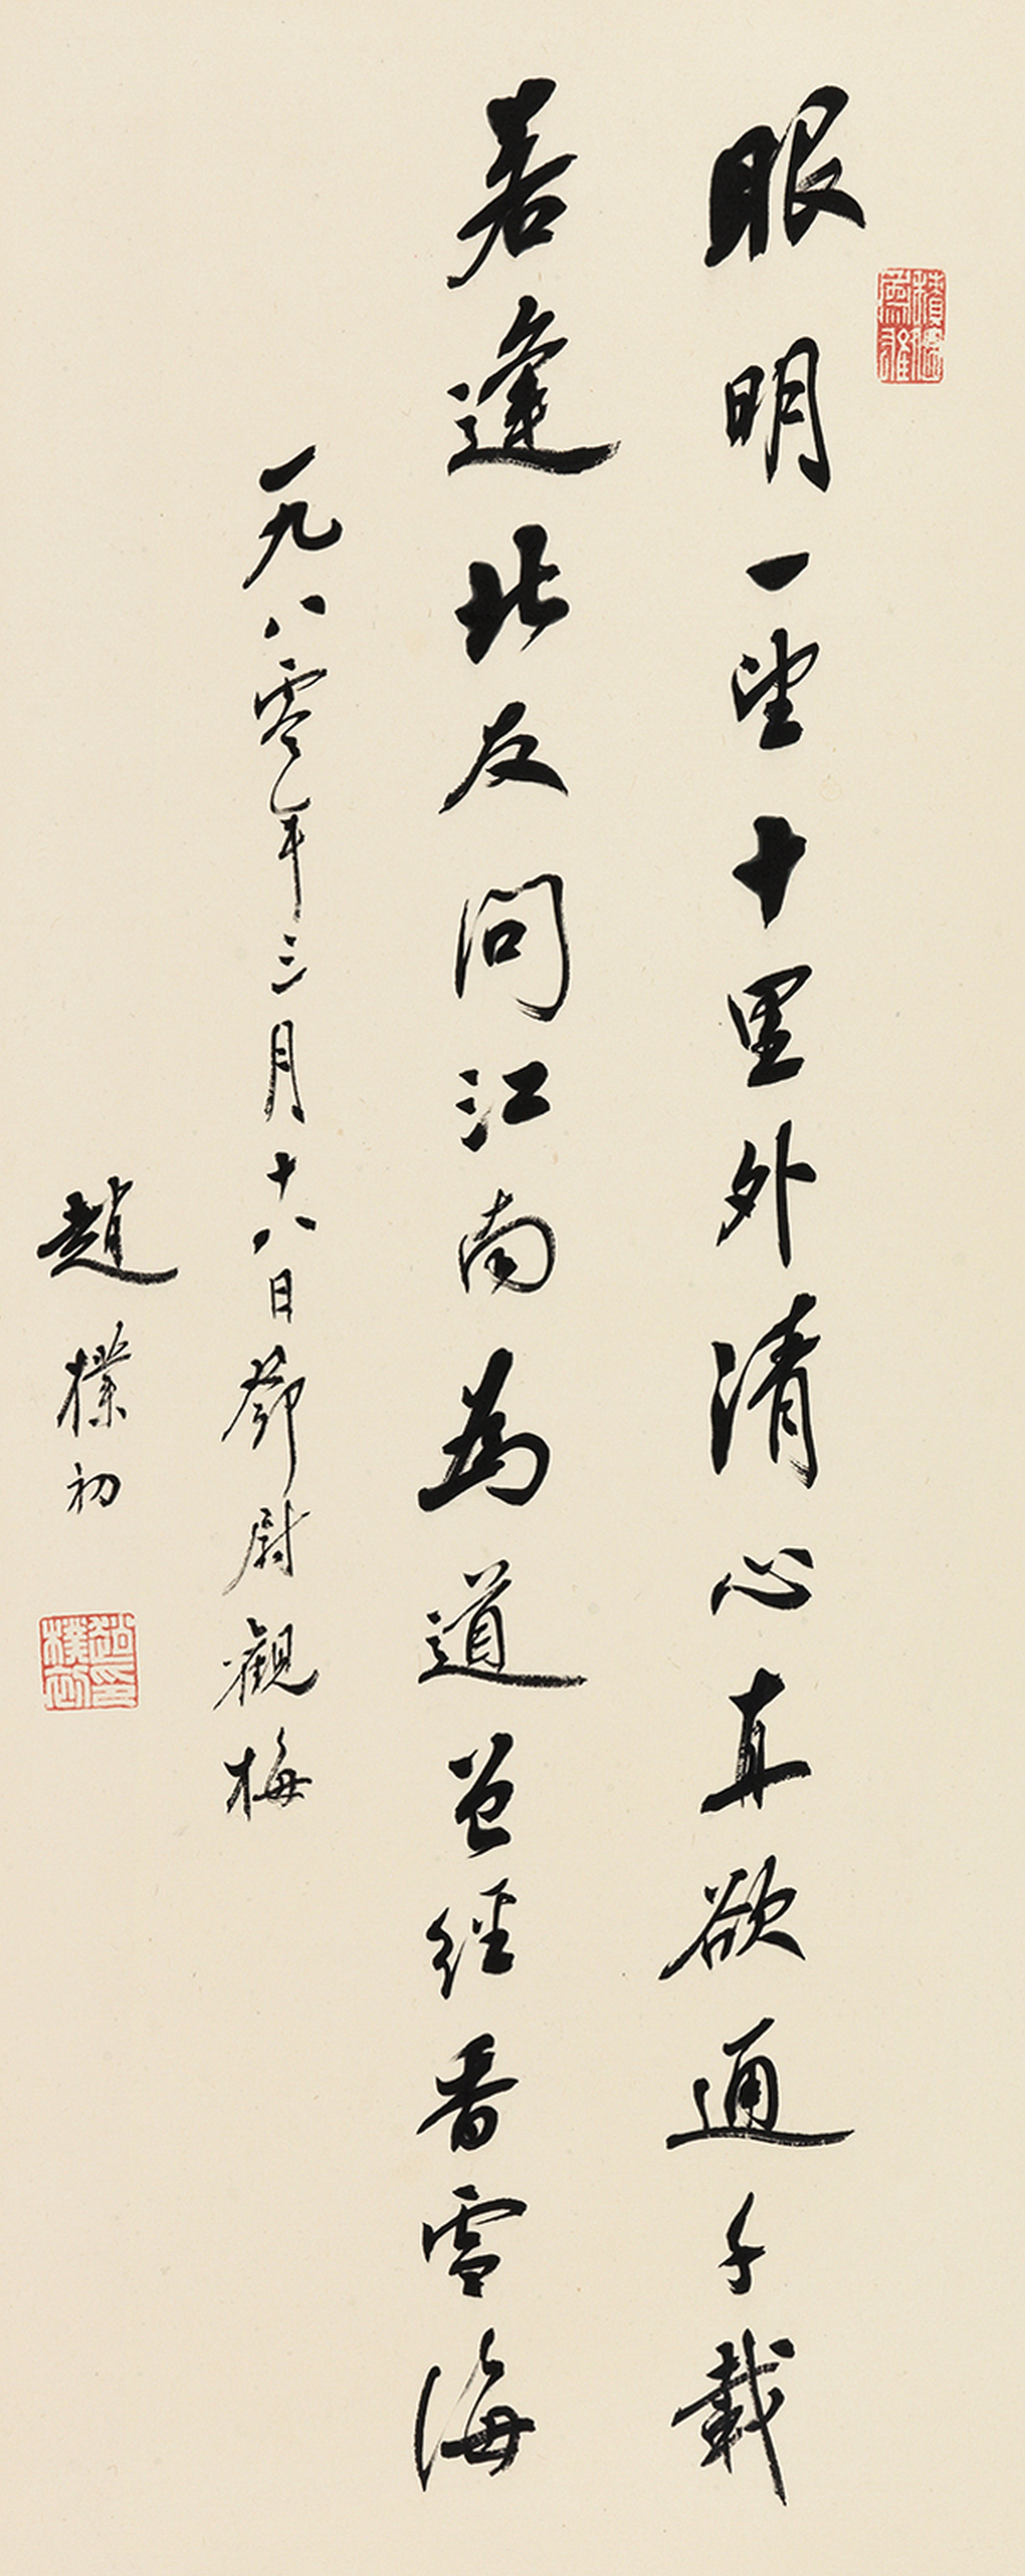 眼明一望十里外清心真欲通千載
若逢北友問江南為道曾經香雪海
一九八零年三月十八日鄧尉觀梅
趙樸初
趙樸初印